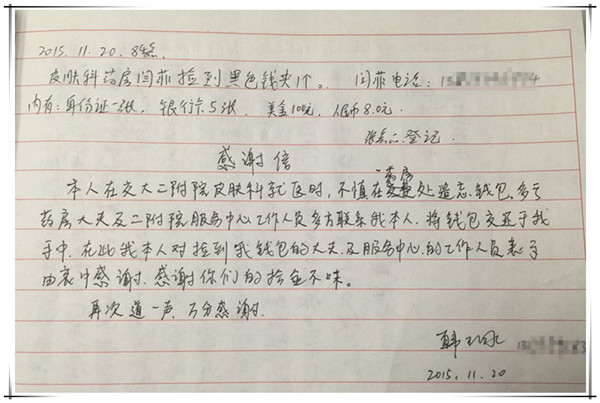 2015.11.20. 8点
皮肤科药房闫菲捡到黑色钱夹1个。 闫菲电话:15
内有:身份证一张, 银行卡5张, 美金100元, 人民币8.0元.
登记
感谢信
药房
本人在交大二附院皮肤科就医时,不慎在处遗忘钱包,多亏
药房大夫及二附院服务中心工作人员多方联系我本人.将钱包交还于我
手中.在此我本人对捡到我钱包的大夫及服务中心.的工作人员表予
由衷中感谢.感谢你们的拾金不昧。
再次道一声.万分感谢.
韩
2015.11.20